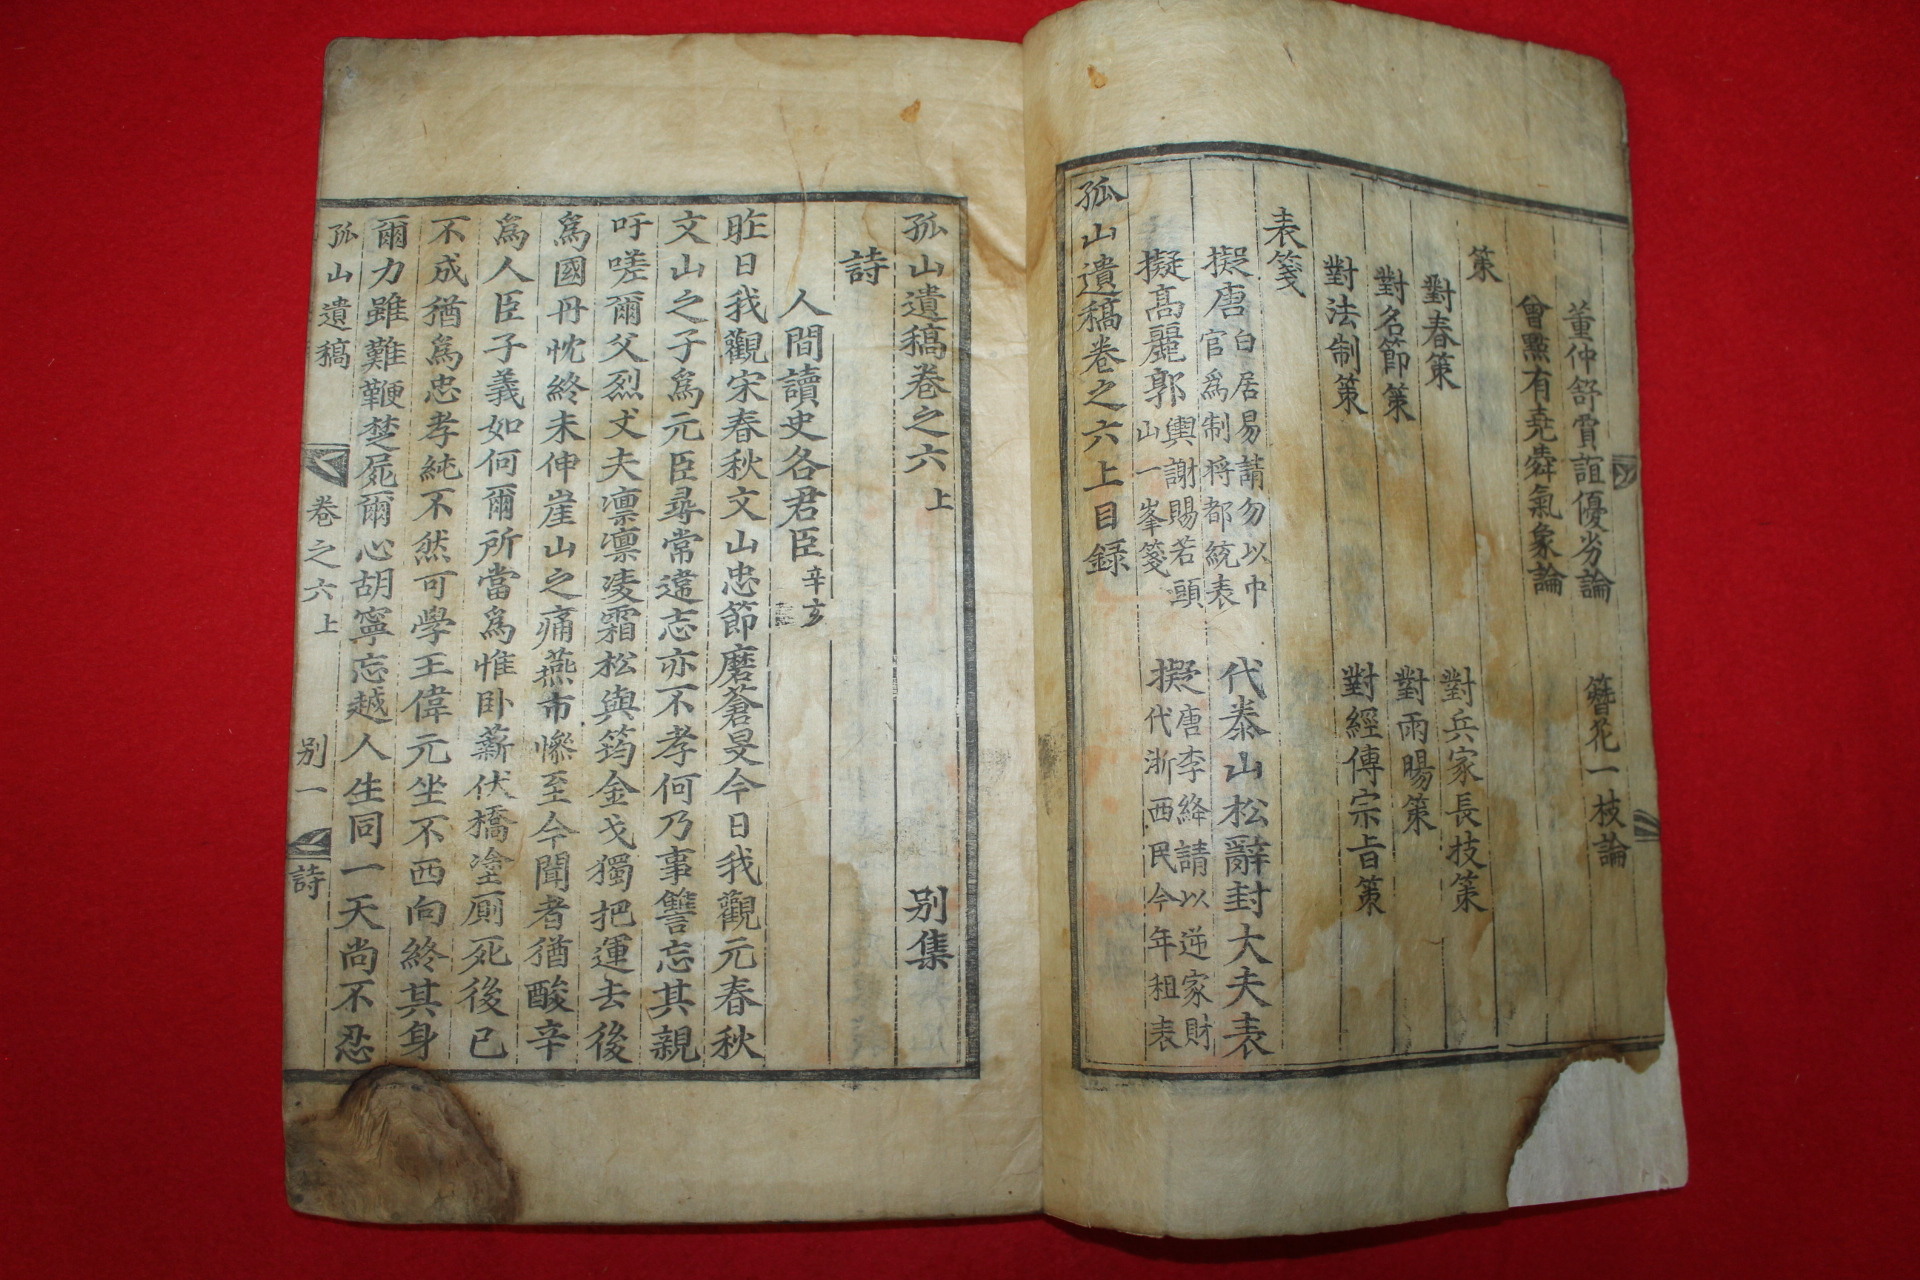 董仲舒賈誼優劣論　簪花一枝論
曾點有堯舜氣象論
策
對春策　對兵家長技策
對名節策　對雨暘策
對法制策　對經傳宗旨策
表箋
擬唐白居易請勿以中官爲制將都統表　代泰山松辭封大夫表
擬高麗郭輿謝賜若頭山一峯箋　擬唐李絳請以逆家財代浙西民今年租表
孤山遺稿卷之六上目錄
孤山遺稿卷之六上　別集
詩
人間讀史各君臣辛亥
昨日我觀宋春秋文山忠節磨蒼旻今日我觀元春秋
文山之子爲元臣尋常違志亦不孝何乃事讐忘其親
吁嗟爾父烈丈夫凛凛凌霜松與筠金戈獨把運去後
爲國丹忱終未伸崖山之痛燕市慘至今聞者猶酸辛
爲人臣子義如何爾所當爲惟卧薪伏橋塗厠死後已
不成猶爲忠孝純不然可學王偉元坐不西向終其身
爾力雖難鞭楚屍爾心胡寧忘越人生同一天尚不忍
孤山遺稿　卷之六上　別一　詩